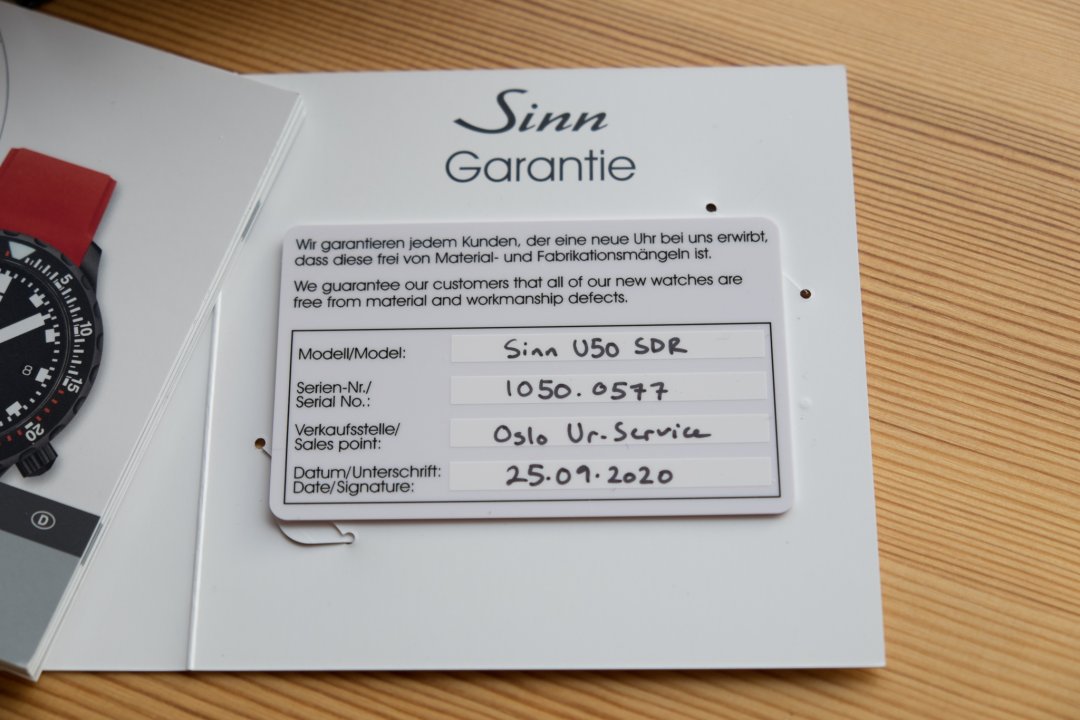 Sinn
Garantie
Wir garantieren jedem Kunden, der eine neue Uhr bei uns erwirbt,
dass diese frei von Material- und Fabrikationsmängeln ist.
We guarantee our customers that all of our new watches are
free from material and workmanship defects.
Modell/Model: Sinn U50 SDR
Serien-Nr./
Serial No.: 1050.0577
Verkaufsstelle/
Sales point: Oslo Ur-Service
Datum/Unterschrift:
Date/Signature: 25.09.2020
5
10
8
15
20
D